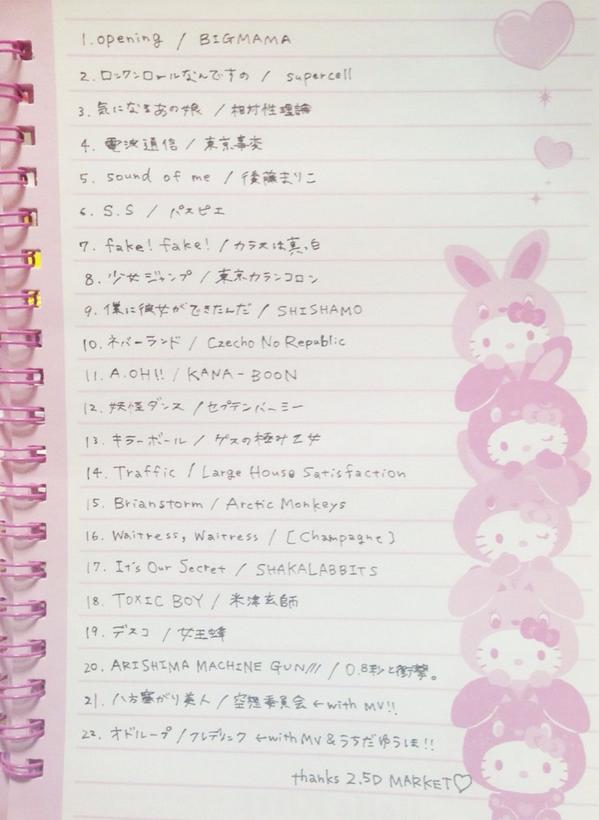 1. opening / BIGMAMA
2. ロックンロールなんですの / supercell
3. 気になるあの娘 / 相対性理論
4. 電波通信 / 東京事変
5. sound of me / 後藤まりこ
6. S.S / パスピエ
7. fake! fake! / カラスは真っ白
8. 少女ジャンプ / 東京カランコロン
9. 僕に彼女ができたんだ / SHISHAMO
10. ネバーランド / Czecho No Republic
11. A.OH!! / KANA-BOON
12. 妖怪ダンス / セプテンバーミー
13. キラーボール / ゲスの極み乙女
14. Traffic / Large House Satisfaction
15. Brianstorm / Arctic Monkeys
16. Waitress, Waitress / [Champagne]
17. It's Our Secret / SHAKALABBITS
18. TOXIC BOY / 米津玄師
19. デスコ / 女王蜂
20. ARISHIMA MACHINE GUN/// / 0.8秒と衝撃。
21. 八方塞がり美人 / 空想委員会 ←with MV!!
22. オドループ / フレデリック ←with MV & うちだゆうほ!!
thanks 2.5D MARKET♡